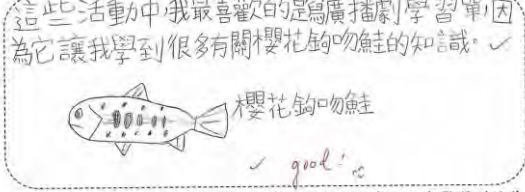 這些活動中,我最喜歡的是寫廣播劇學習單,因
為它讓我學到很多有關櫻花鉤吻鮭的知識。✓
櫻花鉤吻鮭
✓ good!